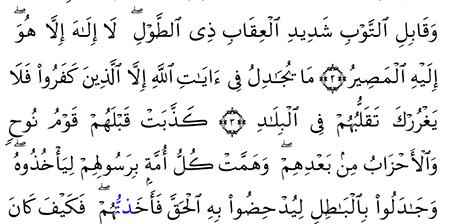 وَقَابِلِ ٱلتَّوْبِ شَدِيدِ ٱلْعِقَابِ ذِى ٱلطَّوْلِ ۖ لَآ إِلَـٰهَ إِلَّا هُوَ ۖ
إِلَيْهِ ٱلْمَصِيرُ ﴿٣﴾ مَا يُجَـٰدِلُ فِىٓ ءَايَـٰتِ ٱللَّهِ إِلَّا ٱلَّذِينَ كَفَرُوا۟ فَلَا
يَغْرُرْكَ تَقَلُّبُهُمْ فِى ٱلْبِلَـٰدِ ﴿٤﴾ كَذَّبَتْ قَبْلَهُمْ قَوْمُ نُوحٍ
وَٱلْأَحْزَابُ مِنۢ بَعْدِهِمْ ۖ وَهَمَّتْ كُلُّ أُمَّةٍۭ بِرَسُولِهِمْ لِيَأْخُذُوهُ ۖ
وَجَـٰدَلُوا۟ بِٱلْبَـٰطِلِ لِيُدْحِضُوا۟ بِهِ ٱلْحَقَّ فَأَخَذتُّهُمْ ۖ فَكَيْفَ كَانَ